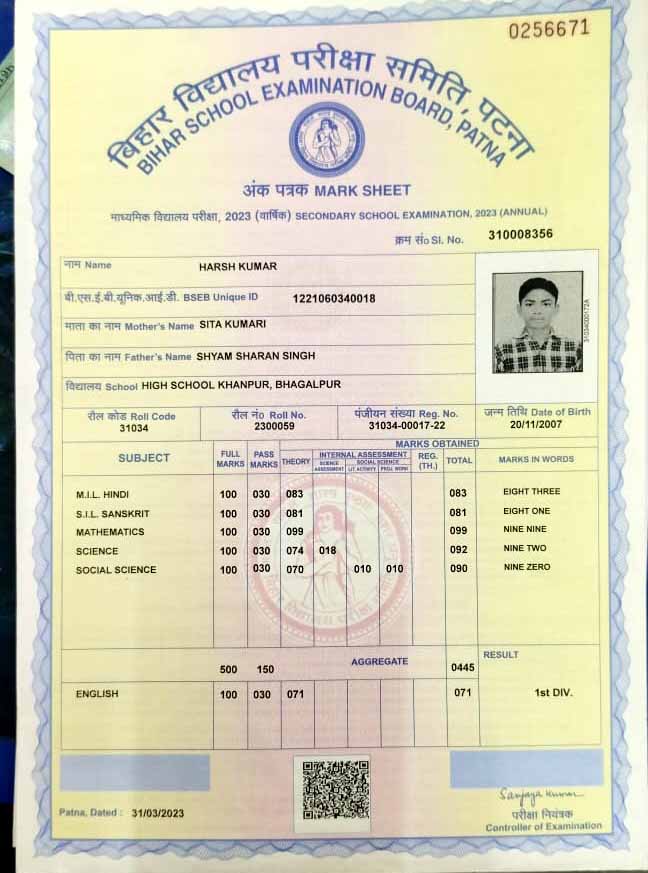 0256671
बिहार विद्यालय परीक्षा समिति, पटना
BIHAR SCHOOL EXAMINATION BOARD, PATNA
अंक पत्रक MARK SHEET
माध्यमिक विद्यालय परीक्षा, 2023 (वार्षिक) SECONDARY SCHOOL EXAMINATION, 2023 (ANNUAL)
क्रम सं० Sl. No. 310008356
नाम Name HARSH KUMAR
बी.एस.ई.बी.यूनिक.आई.डी. BSEB Unique ID 1221060340018
माता का नाम Mother's Name SITA KUMARI
पिता का नाम Father's Name SHYAM SHARAN SINGH
विद्यालय School HIGH SCHOOL KHANPUR, BHAGALPUR
31034000172A
रौल कोड Roll Code रौल नं० Roll No. पंजीयन संख्या Reg. No. जन्म तिथि Date of Birth
31034 2300059 31034-00017-22 20/11/2007
SUBJECT FULL MARKS PASS MARKS MARKS OBTAINED MARKS IN WORDS
THEORY INTERNAL ASSESSMENT REG. (TH.) TOTAL
SCIENCE ASSESSMENT SOCIAL SCIENCE
LIT.ACTIVITY PROJ. WORK
M.I.L. HINDI 100 030 083 083 EIGHT THREE
S.I.L. SANSKRIT 100 030 081 081 EIGHT ONE
MATHEMATICS 100 030 099 099 NINE NINE
SCIENCE 100 030 074 018 092 NINE TWO
SOCIAL SCIENCE 100 030 070 010 010 090 NINE ZERO
500 150 AGGREGATE 0445 RESULT
ENGLISH 100 030 071 071 1st DIV.
Patna, Dated : 31/03/2023
Sanjaya Kumar
परीक्षा नियंत्रक
Controller of Examination